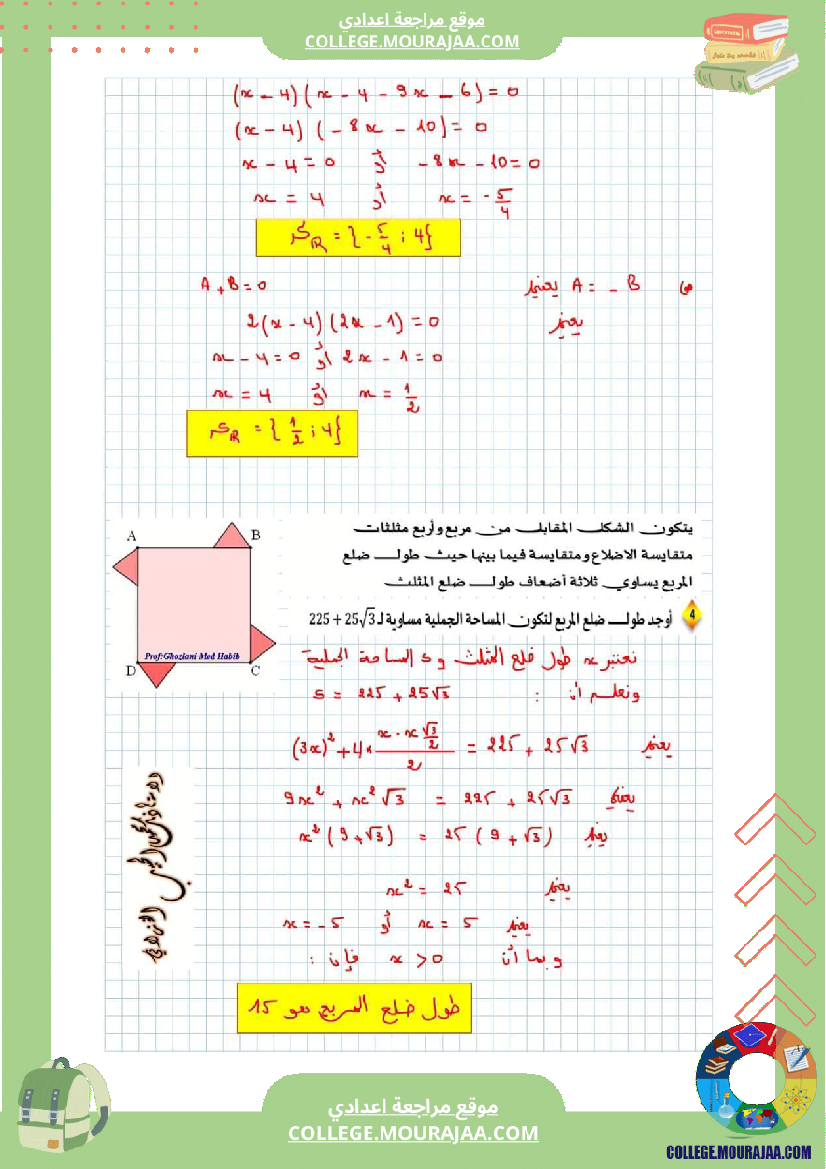 موقع مراجعة اعدادي
COLLEGE.MOURAJAA.COM
(x - 4)(x - 4 - 9x - 6) = 0
(x - 4) (- 8x - 10) = 0
x - 4 = 0 أو - 8x - 10 = 0
x = 4 أو x = - 5/4
S_R = {- 5/4 ; 4}
A = - B يعني A + B = 0
يعني 2(x - 4)(2x - 1) = 0
x - 4 = 0 أو 2x - 1 = 0
x = 4 أو x = 1/2
S_R = {1/2 ; 4}
A B
D C
Prof:Ghoziani Med Habib
يتكون الشكل المقابل من مربع وأربع مثلثات
متقايسة الاضلاع ومتقايسة فيما بينها حيث طول ضلع
المربع يساوي ثلاثة أضعاف طول ضلع المثلث
4 أوجد طول ضلع المربع لتكون المساحة الجملية مساوية لـ 225 + 25√3
نعتبر x طول ضلع المثلث و S المساحة الجملية
ونعلم أن : S = 225 + 25√3
يعني (3x)² + 4 × (x · x √3/2)/2 = 225 + 25√3
يعني 9x² + x²√3 = 225 + 25√3
يعني x² (9 + √3) = 25 (9 + √3)
يعني x² = 25
يعني x = 5 أو x = - 5
وبما أن x > 0 فإن :
طول ضلع المربع هو 15
موقع مراجعة اعدادي
COLLEGE.MOURAJAA.COM
COLLEGE.MOURAJAA.COM